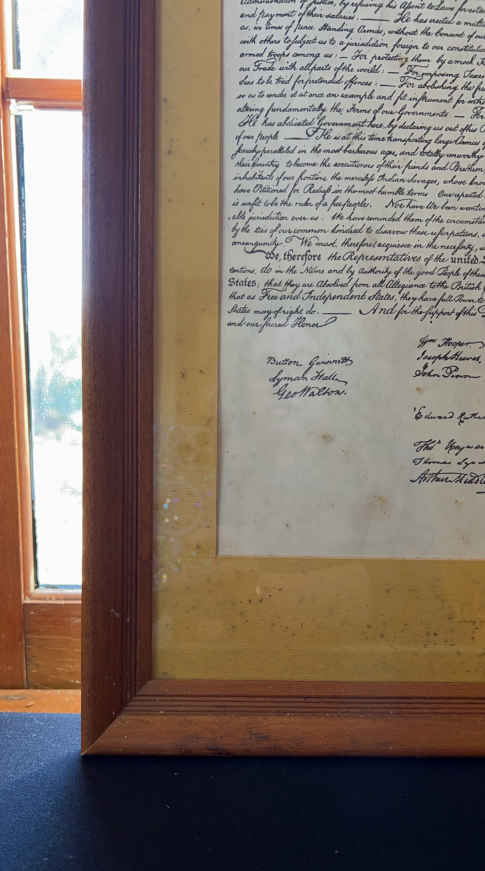 Administration of Justice, by refusing his Assent to Laws for esta
and payment of their salaries. — He has erected a mult
us, in times of peace Standing Armies, without the Consent of ou
with others to subject us to a jurisdiction foreign to our constitut
armed troops among us: — For protecting them by a mock T
our Trade with all parts of the world: — For imposing Taxes
Seas to be tried for pretended offences: — For abolishing the fre
so as to render it at once an example and fit instrument for intr
altering fundamentally the Forms of our Governments: — For
He has abdicated Government here, by declaring us out of his P
of our people. — He is at this time transporting large Armies o
scarcely paralleled in the most barbarous ages, and totally unworthy
their Country, to become the executioners of their friends and Brethren
inhabitants of our frontiers, the merciless Indian Savages, whose know
have Petitioned for Redress in the most humble terms: Our repeated
is unfit to be the ruler of a free people. Nor have We been wanti
able jurisdiction over us. We have reminded them of the circumstan
by the ties of our common kindred to disavow these usurpations, w
consanguinity. We must, therefore, acquiesce in the necessity, w
We, therefore, the Representatives of the united S
tentions, do, in the Name, and by Authority of the good People of these
States; that they are Absolved from all Allegiance to the British C
that as Free and Independent States, they have full Power to
States may of right do. — And for the support of this D
and our sacred Honor
Wm Hooper
Joseph Hewes,
John Penn
Button Gwinnett
Lyman Hall
Geo Walton.
Edward Rutle
Thos Heywar
Thomas Lyn
Arthur Middle